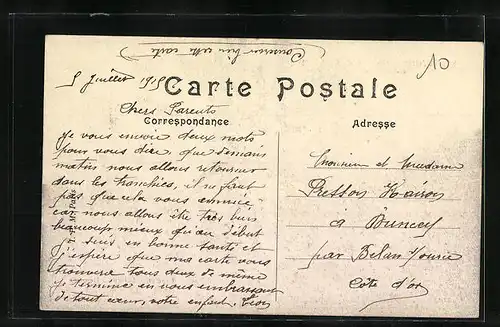 (Conserver bien cette carte)
10
5 Juillet 1915
Carte Postale
Chers Parents
Correspondance
Adresse
Je vous envoie deux mots
pour vous dire, que demain
matin nous allons retourner
dans les tranchées, il ne faut
pas que cela vous ennuie
car nous allons être très bien
beaucoup mieux qu'au début
je suis en bonne santé et
j'espère que ma carte vous
trouvera tous deux de même
je termine en vous embrassant
de tout cœur, votre enfant. Léon
Monsieur et Madame
à Buncey
par Belan s/ource
Côte d'or